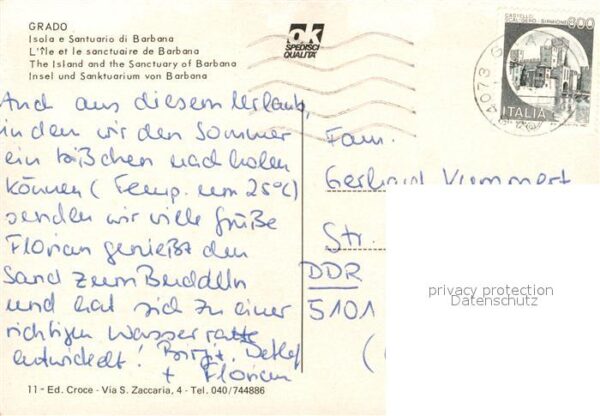 GRADO
Isola e Santuario di Barbana
L'Île et le sanctuaire de Barbana
The Island and the Sanctuary of Barbana
Insel und Sanktuarium von Barbana
ok
SPEDISCI
QUALITÀ
CASTELLO
SCALIGERO - SIRMIONE
800
ITALIA
34073 G
Auch aus diesem Urlaub,
in den wir den Sommer
ein bißchen nachholen
können (Temp. um 25°C)
senden wir viele Grüße
Florian genießt den
Sand zum Buddeln
und hat sich zu einer
richtigen Wasserratte
entwickelt! Birgit, Detlef
+ Florian
Fam.
Gerhard Kummert
Str.
DDR
5101
(
privacy protection
Datenschutz
11 - Ed. Croce - Via S. Zaccaria, 4 - Tel. 040/744886